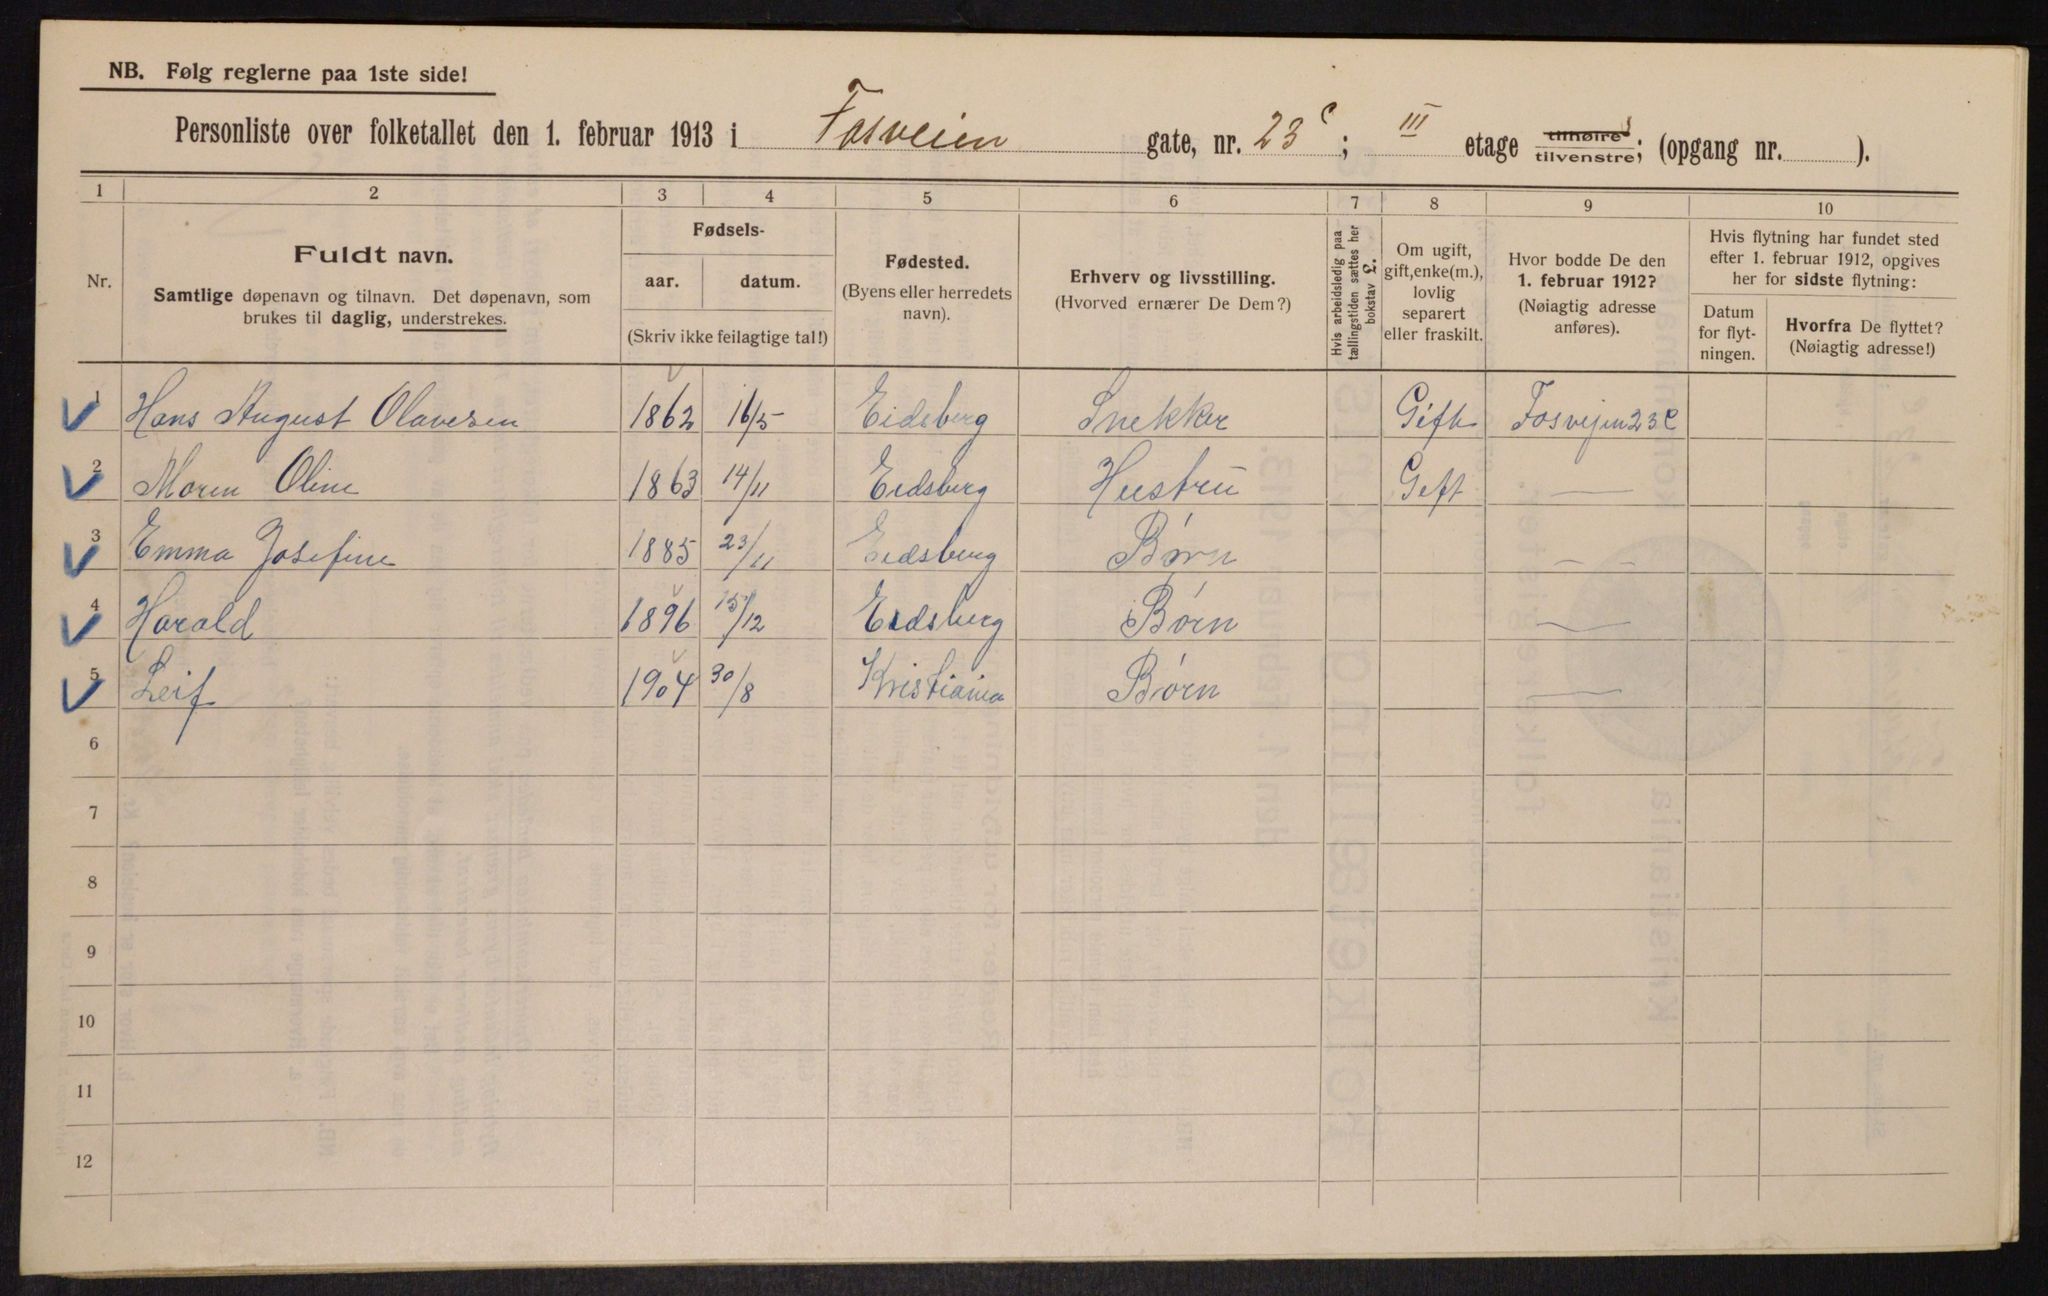 NB. Følg reglerne paa 1ste side!
Personliste over folketallet den 1. februar 1913 i Fosveien gate, nr. 23 c; III etage tilhøire tilvenstre; (opgang nr. ).
1 2 3 4 5 6 7 8 9 10
Nr.
Fuldt navn.
Samtlige døpenavn og tilnavn. Det døpenavn, som
brukes til daglig, understrekes.
Fødsels-
aar. datum.
(Skriv ikke feilagtige tal!)
Fødested.
(Byens eller herredets
navn).
Erhverv og livsstilling.
(Hvorved ernærer De Dem?)
Hvis arbeidsledig paa
tællingstiden sættes her
bokstav L.
Om ugift,
gift, enke(m.),
lovlig
separert
eller fraskilt.
Hvor bodde De den
1. februar 1912?
(Nøiagtig adresse
anføres).
Hvis flytning har fundet sted
efter 1. februar 1912, opgives
her for sidste flytning:
Datum
for flyt-
ningen.
Hvorfra De flyttet?
(Nøiagtig adresse!)
1 Hans August Olavesen 1862 16/5 Eidsberg Snekker Gift Fosvejen 23 C
2 Maren Oline 1863 14/11 Eidsberg Hustru Gift —
3 Emma Josefine 1885 23/11 Eidsberg Børn — —
4 Harald 1896 15/12 Eidsberg Børn —
5 Leif 1904 30/8 Kristiania Børn —
6
7
8
9
10
11
12